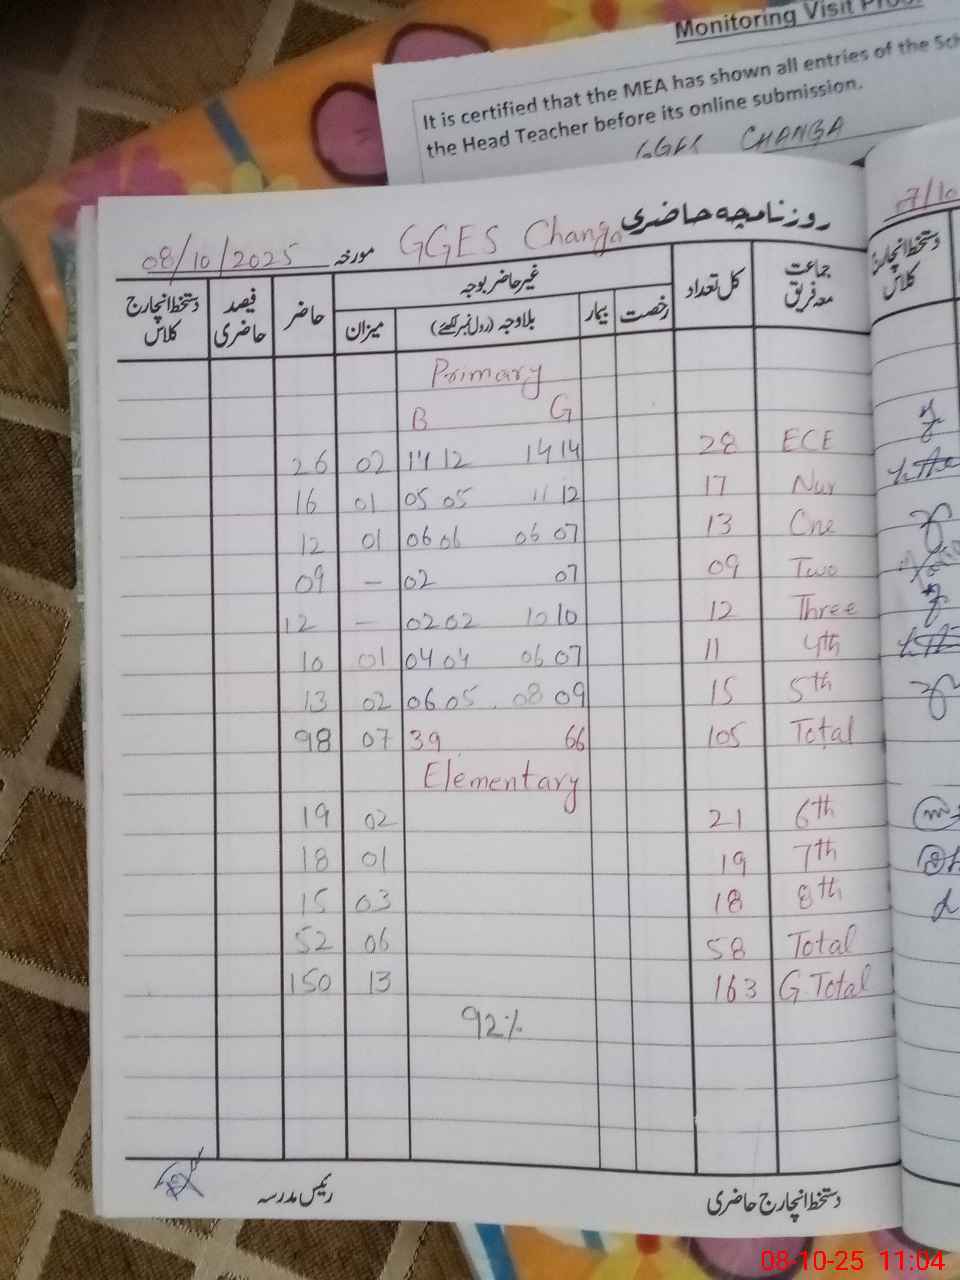 Monitoring Visit
It is certified that the MEA has shown all entries of the
the Head Teacher before its online submission.
GGES CHANGA
7/10
روزنامچہ حاضری GGES Changa مورخہ 08/10/2025
جماعت معہ فریق کل تعداد غیر حاضر بوجہ حاضر فیصد حاضری دستخط انچارج کلاس
رخصت بیمار بلاوجہ (رول نمبر لکھیے) میزان
دستخط انچارج کلاس
Primary
B G
26 02 14 12 14 14 28 ECE
16 01 05 05 11 12 17 Nur
12 01 06 06 06 07 13 One
09 – 02 07 09 Two
12 – 02 02 10 10 12 Three
10 01 04 04 06 07 11 4th
13 02 06 05 08 09 15 5th
98 07 39 66 105 Total
Elementary
19 02 21 6th
18 01 19 7th
15 03 18 8th
52 06 58 Total
150 13 163 G.Total
92%
دستخط انچارج حاضری رئیس مدرسہ
08-10-25 11:04